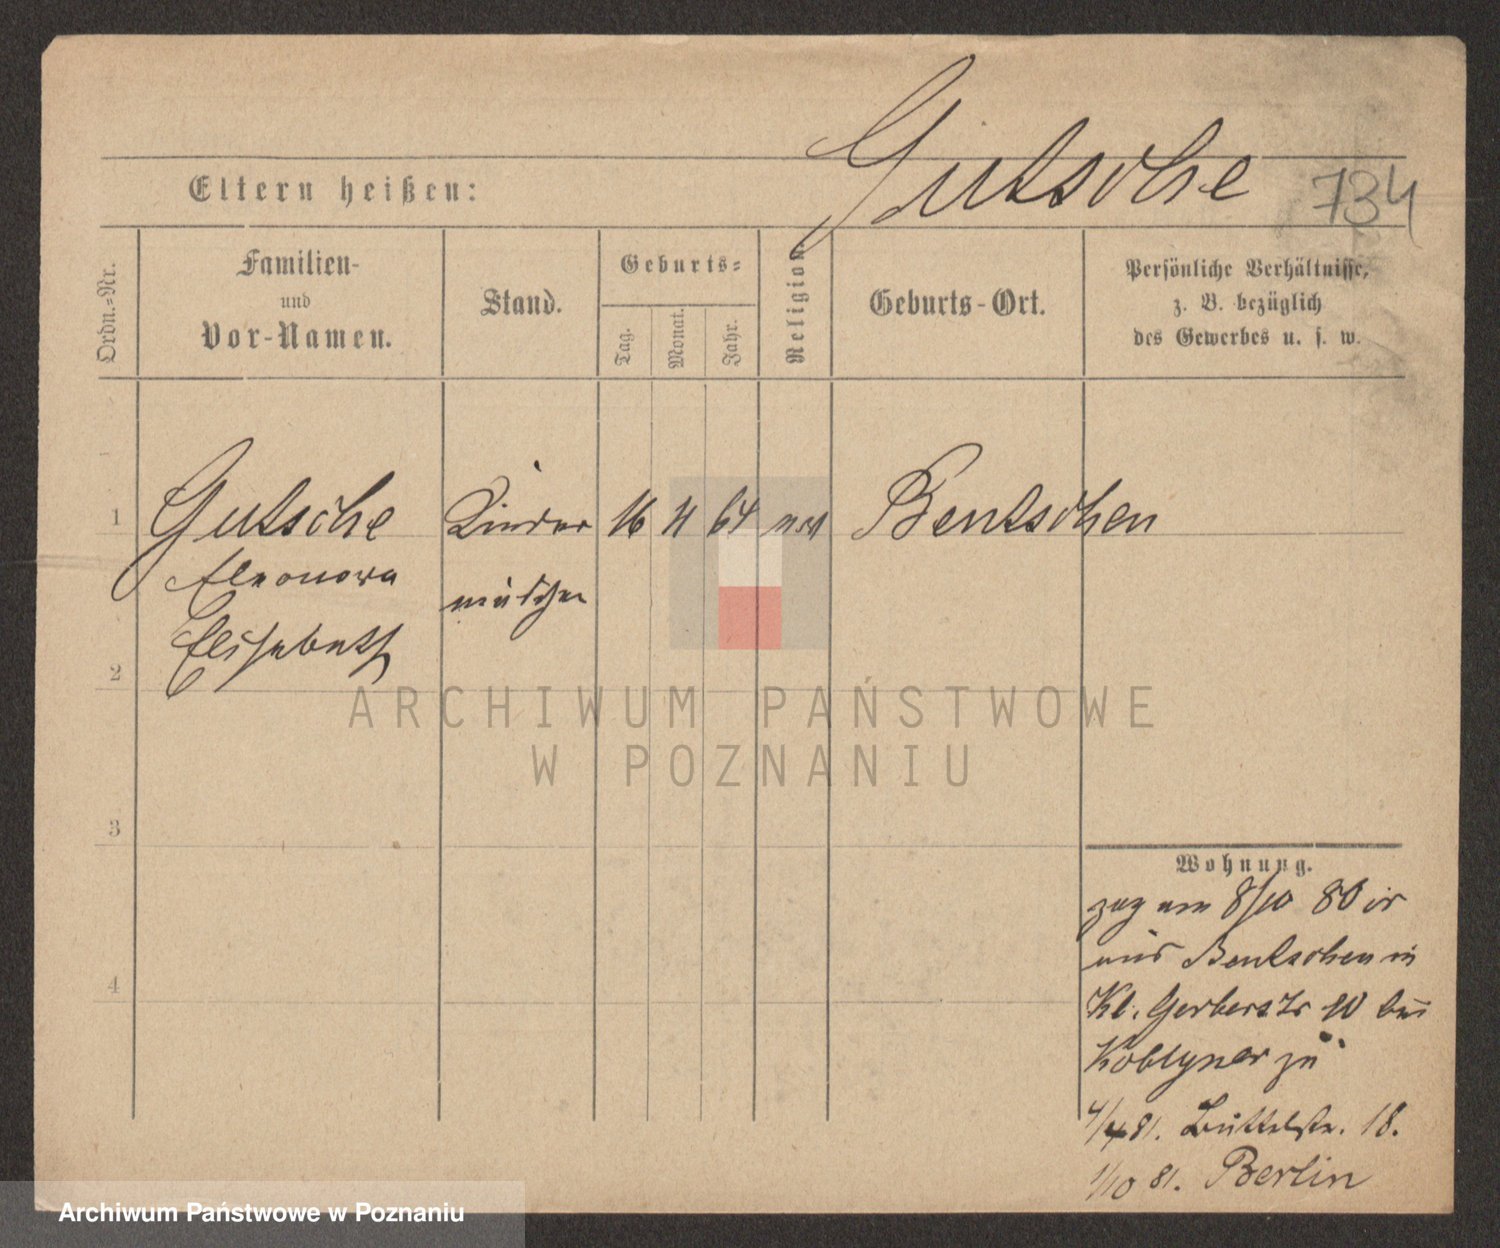 Gutsche
734
Eltern heißen:
Ordn.-Nr.
Familien-
und
Vor-Namen.
Stand.
Geburts-
Tag.
Monat.
Jahr.
Religion
Geburts-Ort.
Persönliche Verhältnisse,
z. B. bezüglich
des Gewerbes u. s. w.
1 Gutsche Kinder 16 11 64 Bentschen
Eleonora mädchen
Elisabeth
2
3
4
Wohnung.
zug am 8/10 80 ir
aus Bentschen in
Kl. Gerberstr 10 bei
zu
4/4 81. Büttelstr. 18.
1/10 81. Berlin
ARCHIWUM PAŃSTWOWE
W POZNANIU
Archiwum Państwowe w Poznaniu